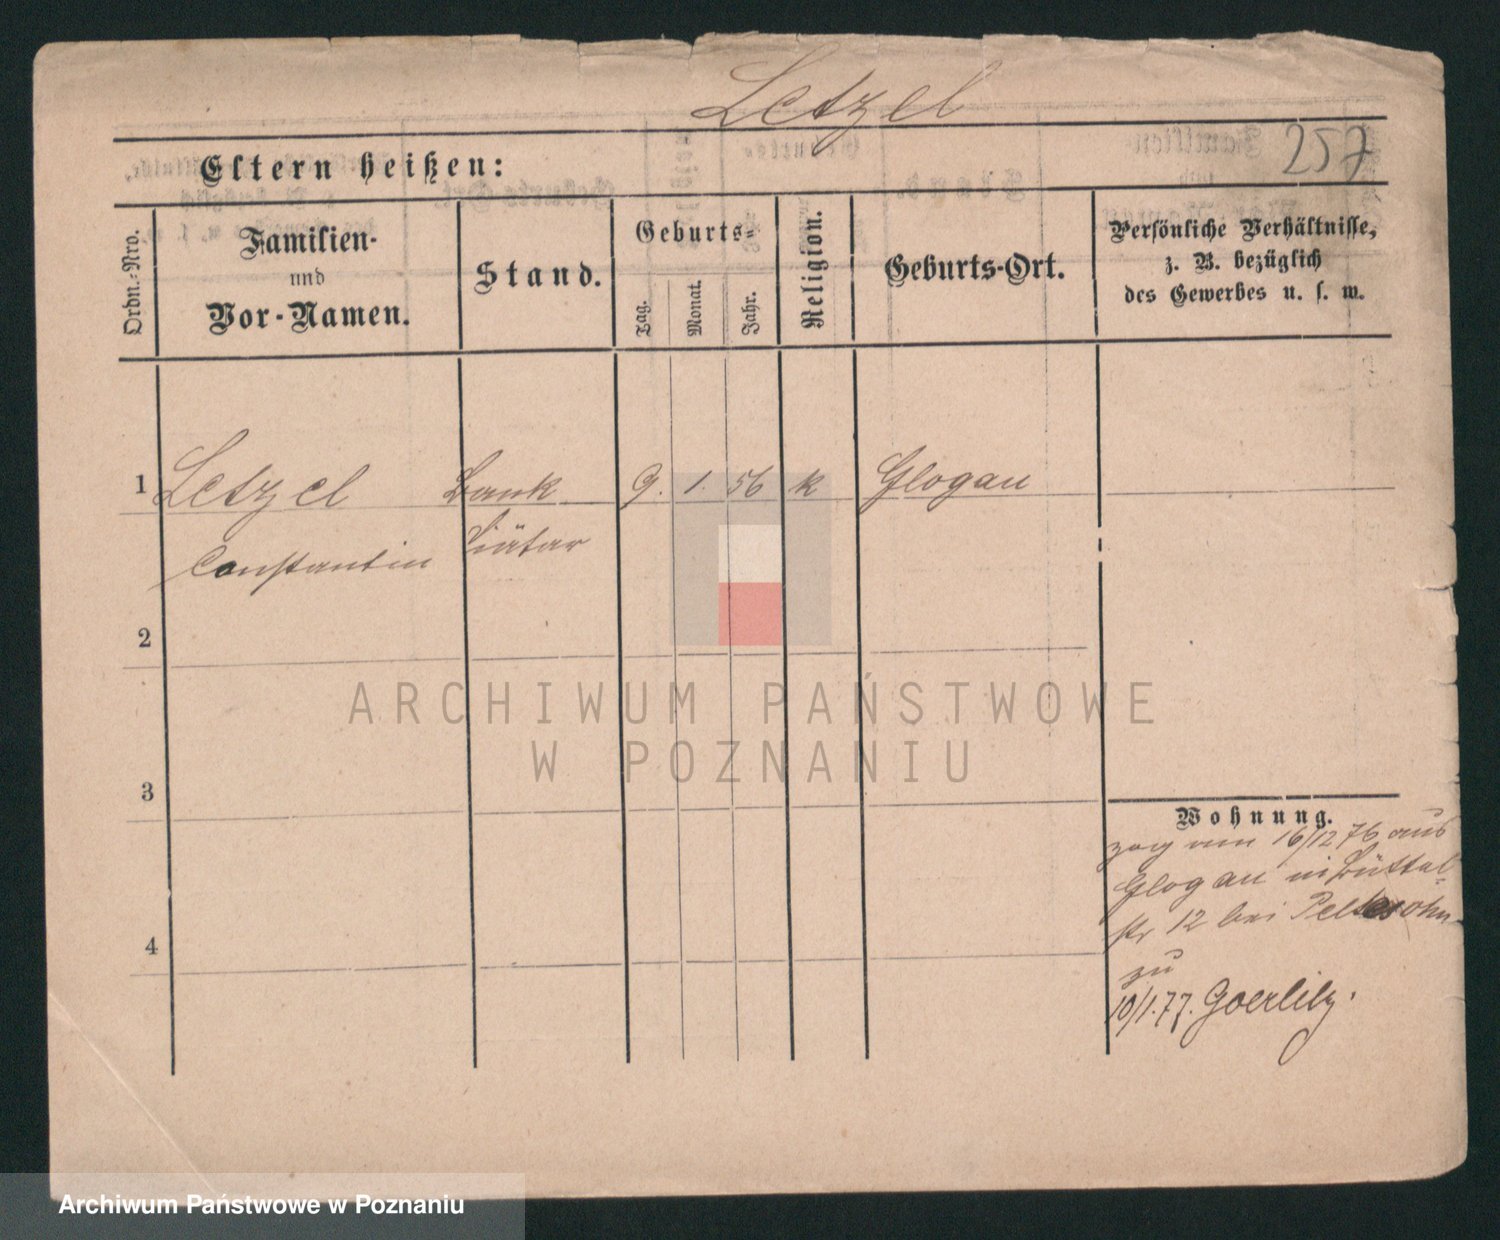 Letzel
257
Eltern heißen:
Ordn.-Nro.
Familien-
und
Vor-Namen.
Stand.
Geburts-
Tag.
Monat.
Jahr.
Religion.
Geburts-Ort.
Persönliche Verhältnisse,
z. B. bezüglich
des Gewerbes u. s. w.
1 Letzel Bank 9. 1. 56 k Glogau
Constantin
2
ARCHIWUM PAŃSTWOWE
W POZNANIU
3
4
Wohnung.
zog am 16/12 76 aus
Glogau in Büttel-
str 12 bei
zu
10/1.77. Goerlitz.
Archiwum Państwowe w Poznaniu